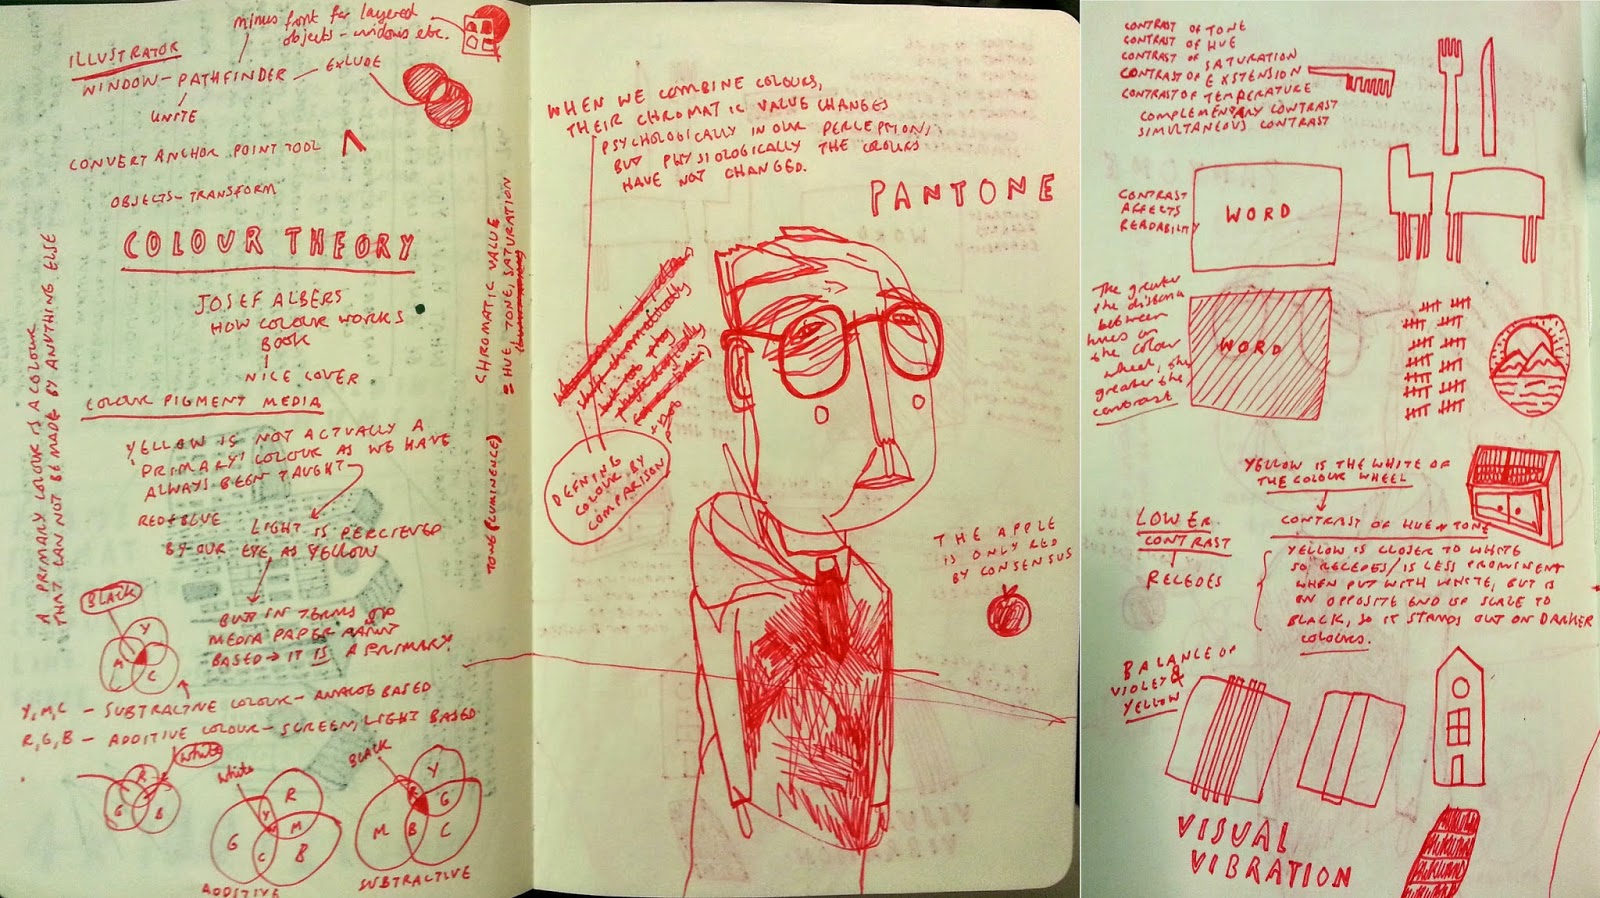 minus front for layered
objects - windows etc.
ILLUSTRATOR
WINDOW - PATHFINDER - EXLUDE
UNITE
CONVERT ANCHOR POINT TOOL
OBJECTS - TRANSFORM
COLOUR THEORY
JOSEF ALBERS
HOW COLOUR WORKS
BOOK
NICE COVER
COLOUR PIGMENT MEDIA
YELLOW IS NOT ACTUALLY A
'PRIMARY' COLOUR AS WE HAVE
ALWAYS BEEN TAUGHT
RED + BLUE LIGHT IS PERCIEVED
BY OUR EYE AS YELLOW
BUT IN TERMS OF
MEDIA PAPER PAINT
BASED → IT IS A PRIMARY.
BLACK
Y
M C
Y, M, C - SUBTRACTIVE COLOUR - ANALOG BASED
R, G, B - ADDITIVE COLOUR - SCREEN, LIGHT BASED
White
R
G B
White
R
Y
G M
C B
ADDITIVE
BLACK
Y
R G
M B C
SUBTRACTIVE
A PRIMARY COLOUR IS A COLOUR
THAT CAN NOT BE MADE BY ANYTHING ELSE
CHROMATIC VALUE
= HUE, TONE, SATURATION
TONE (LUMINENCE)
WHEN WE COMBINE COLOURS,
THEIR CHROMATIC VALUE CHANGES
PSYCHOLOGICALLY IN OUR PERCEPTION,
BUT PHYSIOLOGICALLY THE COLOURS
HAVE NOT CHANGED.
PANTONE
DEFNING
COLOUR BY
COMPARISON
THE APPLE
IS ONLY RED
BY CONSENSUS
CONTRAST OF TONE
CONTRAST OF HUE
CONTRAST OF SATURATION
CONTRAST OF EXSTENSION
CONTRAST OF TEMPERATURE
COMPLEMENTARY CONTRAST
SIMULTANEOUS CONTRAST
CONTRAST
AFFECTS
READABILITY
WORD
The greater
the distance
between
hues on
the colour
wheel, the
greater the
contrast
WORD
YELLOW IS THE WHITE OF
THE COLOUR WHEEL
LOWER
CONTRAST
RECEDES
CONTRAST OF HUE + TONE
YELLOW IS CLOSER TO WHITE
SO RECEDES/IS LESS PROMINENT
WHEN PUT WITH WHITE, BUT IS
ON OPPOSITE END OF SCALE TO
BLACK, SO IT STANDS OUT ON DARKER
COLOURS.
BALANCE OF
VIOLET &
YELLOW
VISUAL
VIBRATION